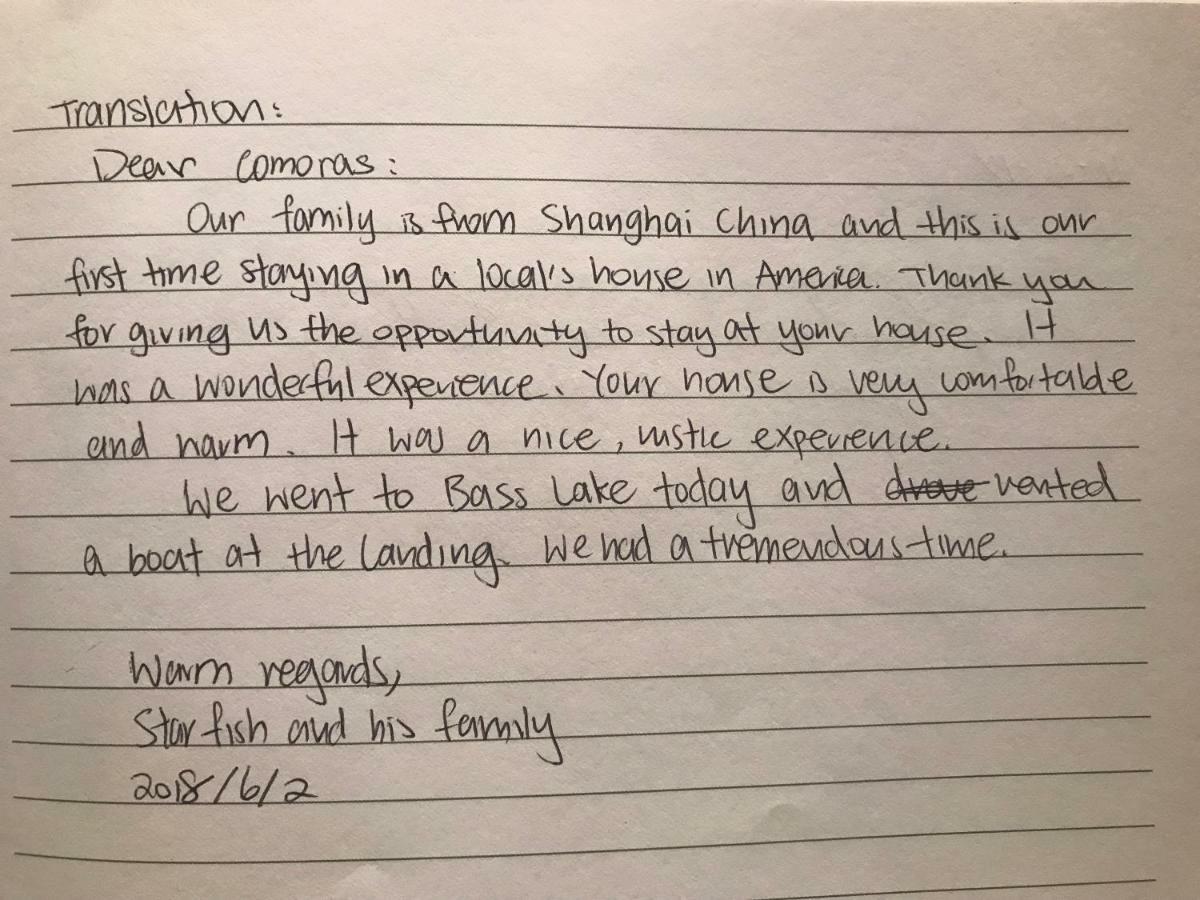 Translation:
Dear Comoras:
Our family is from Shanghai China and this is our
first time staying in a local's house in America. Thank you
for giving us the opportunity to stay at your house. It
was a wonderful experience. Your house is very comfortable
and warm. It was a nice, rustic experience.
We went to Bass Lake today and drove rented
a boat at the landing. We had a tremendous time.
Warm regards,
Star fish and his family
2018/6/2